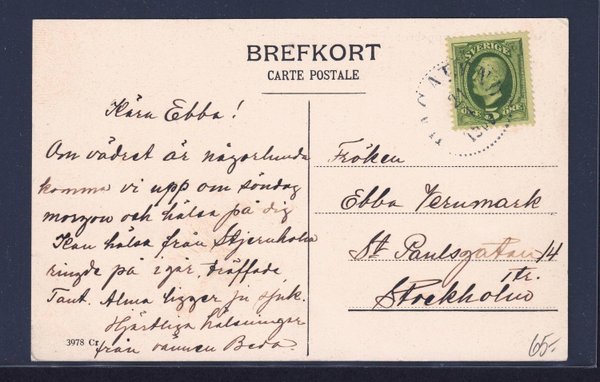 BREFKORT
CARTE POSTALE
SVERIGE
5
ÖRE
Kära Ebba!
Om vädret är någorlunda
komma vi upp om söndag
morgon och hälsa på dig
Kan hälsa från Stjernholm
ringde på i går, träffade
Tant. Alma ligger ju sjuk.
Hjärtliga hälsningar
från vännen Beda.
Fröken
Ebba Vernmark
St Paulsgatan 14
Stockholm
3978 Cr
65.-